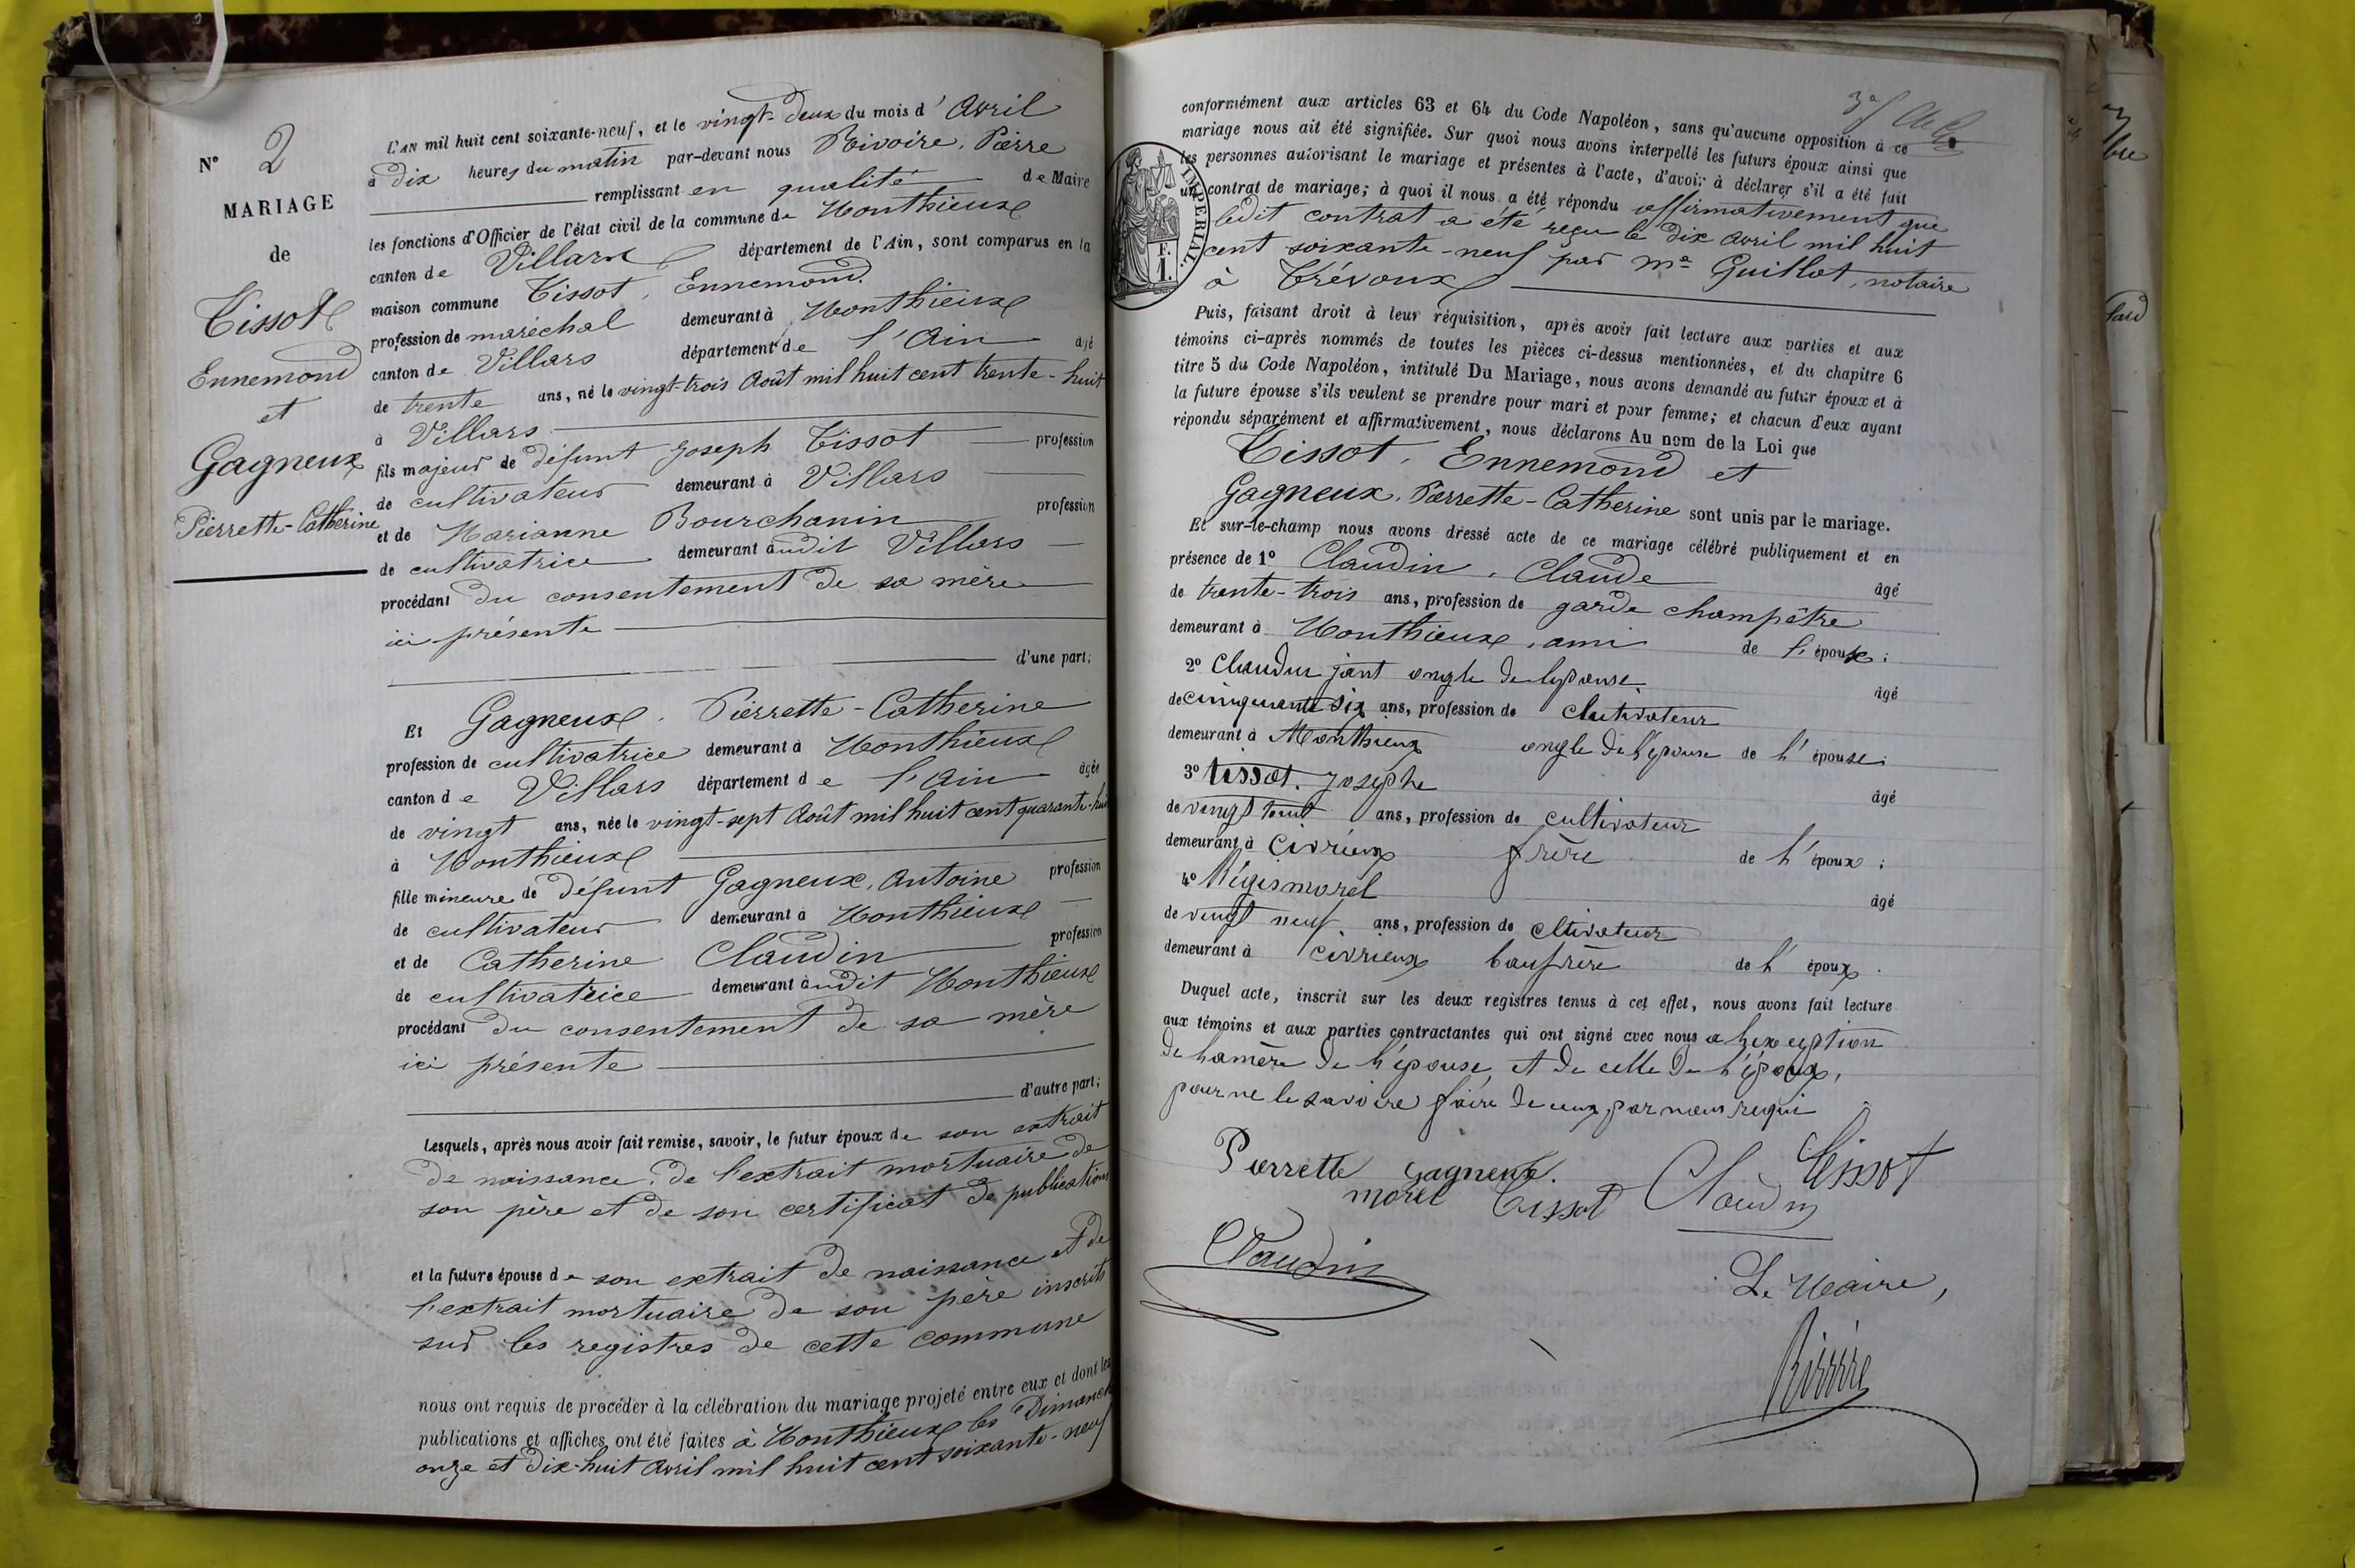 N° 2
MARIAGE
de
Tissot
Ennemond
et
Gagneux
Pierrette-Catherine
L'AN mil huit cent soixante-neuf, et le vingt-deux du mois d'Avril
à dix heures du matin par-devant nous Rivoire, Pierre
remplissant en qualité de Maire
les fonctions d'Officier de l'état civil de la commune de Monthieux
canton de Villars département de l'Ain, sont comparus en la
maison commune Tissot, Ennemond.
profession de maréchal demeurant à Monthieux
canton de Villars département de l'Ain âgé
de trente ans, né le vingt-trois Août mil huit cent trente-huit
à Villars
fils majeur de défunt Joseph Tissot profession
de cultivateur demeurant à Villars
et de Marianne Bourchanin profession
de cultivatrice demeurant audit Villars
procédant du consentement de sa mère
ici présente
d'une part;
Et Gagneux, Pierrette-Catherine
profession de cultivatrice demeurant à Monthieux
canton de Villars département de l'Ain âgée
de vingt ans, née le vingt-sept Août mil huit cent quarante-huit
à Monthieux
fille mineure de défunt Gagneux, Antoine profession
de cultivateur demeurant à Monthieux
et de Catherine Claudin profession
de cultivatrice demeurant audit Monthieux
procédant du consentement de sa mère
ici présente
d'autre part;
Lesquels, après nous avoir fait remise, savoir, le futur époux de son extrait
de naissance, de l'extrait mortuaire de
son père et de son certificat de publications
et la future épouse de son extrait de naissance et de
l'extrait mortuaire de son père inscrits
sur les registres de cette commune
nous ont requis de procéder à la célébration du mariage projeté entre eux et dont les
publications et affiches ont été faites à Monthieux les Dimanch
onze et dix-huit Avril mil huit cent soixante-neuf
conformément aux articles 63 et 64 du Code Napoléon, sans qu'aucune opposition à ce
mariage nous ait été signifiée. Sur quoi nous avons interpellé les futurs époux ainsi que
les personnes autorisant le mariage et présentes à l'acte, d'avoir à déclarer s'il a été fait
un contrat de mariage; à quoi il nous a été répondu affirmativement que
ledit contrat a été reçu le dix Avril mil huit
cent soixante-neuf par Me Guillot, notaire
à Trévoux
IMPERIAL
F.
1.
Puis, faisant droit à leur réquisition, après avoir fait lecture aux parties et aux
témoins ci-après nommés de toutes les pièces ci-dessus mentionnées, et du chapitre 6
titre 5 du Code Napoléon, intitulé Du Mariage, nous avons demandé au futur époux et à
la future épouse s'ils veulent se prendre pour mari et pour femme; et chacun d'eux ayant
répondu séparément et affirmativement, nous déclarons Au nom de la Loi que
Tissot, Ennemond et
Gagneux, Pierrette-Catherine sont unis par le mariage.
Et sur-le-champ nous avons dressé acte de ce mariage célébré publiquement et en
présence de 1° Claudin, Claude âgé
de trente-trois ans, profession de garde champêtre
demeurant à Monthieux, ami de l'épouse;
2° Claudin jant ongle de lepouse âgé
de cinquante six ans, profession de clutivateur
demeurant à Monthieux ongle de l'epouse de l'épouse;
3° tissot. Josephe âgé
de vingt ans, profession de cultivateur
demeurant à Civrieux frère de l'époux;
4° Régis morel âgé
de vingt neuf ans, profession de cltivateur
demeurant à Civrieux baufrère de l'époux.
Duquel acte, inscrit sur les deux registres tenus à cet effet, nous avons fait lecture
aux témoins et aux parties contractantes qui ont signé avec nous a lexception
de lamère de l'épouse, et de celle de l'époux,
pour ne le savoire faire de ceux par nous requi
Pierrette Gagneux. Tissot
morel Tissot Claudin
Claudin
Le Maire,
Rivoire